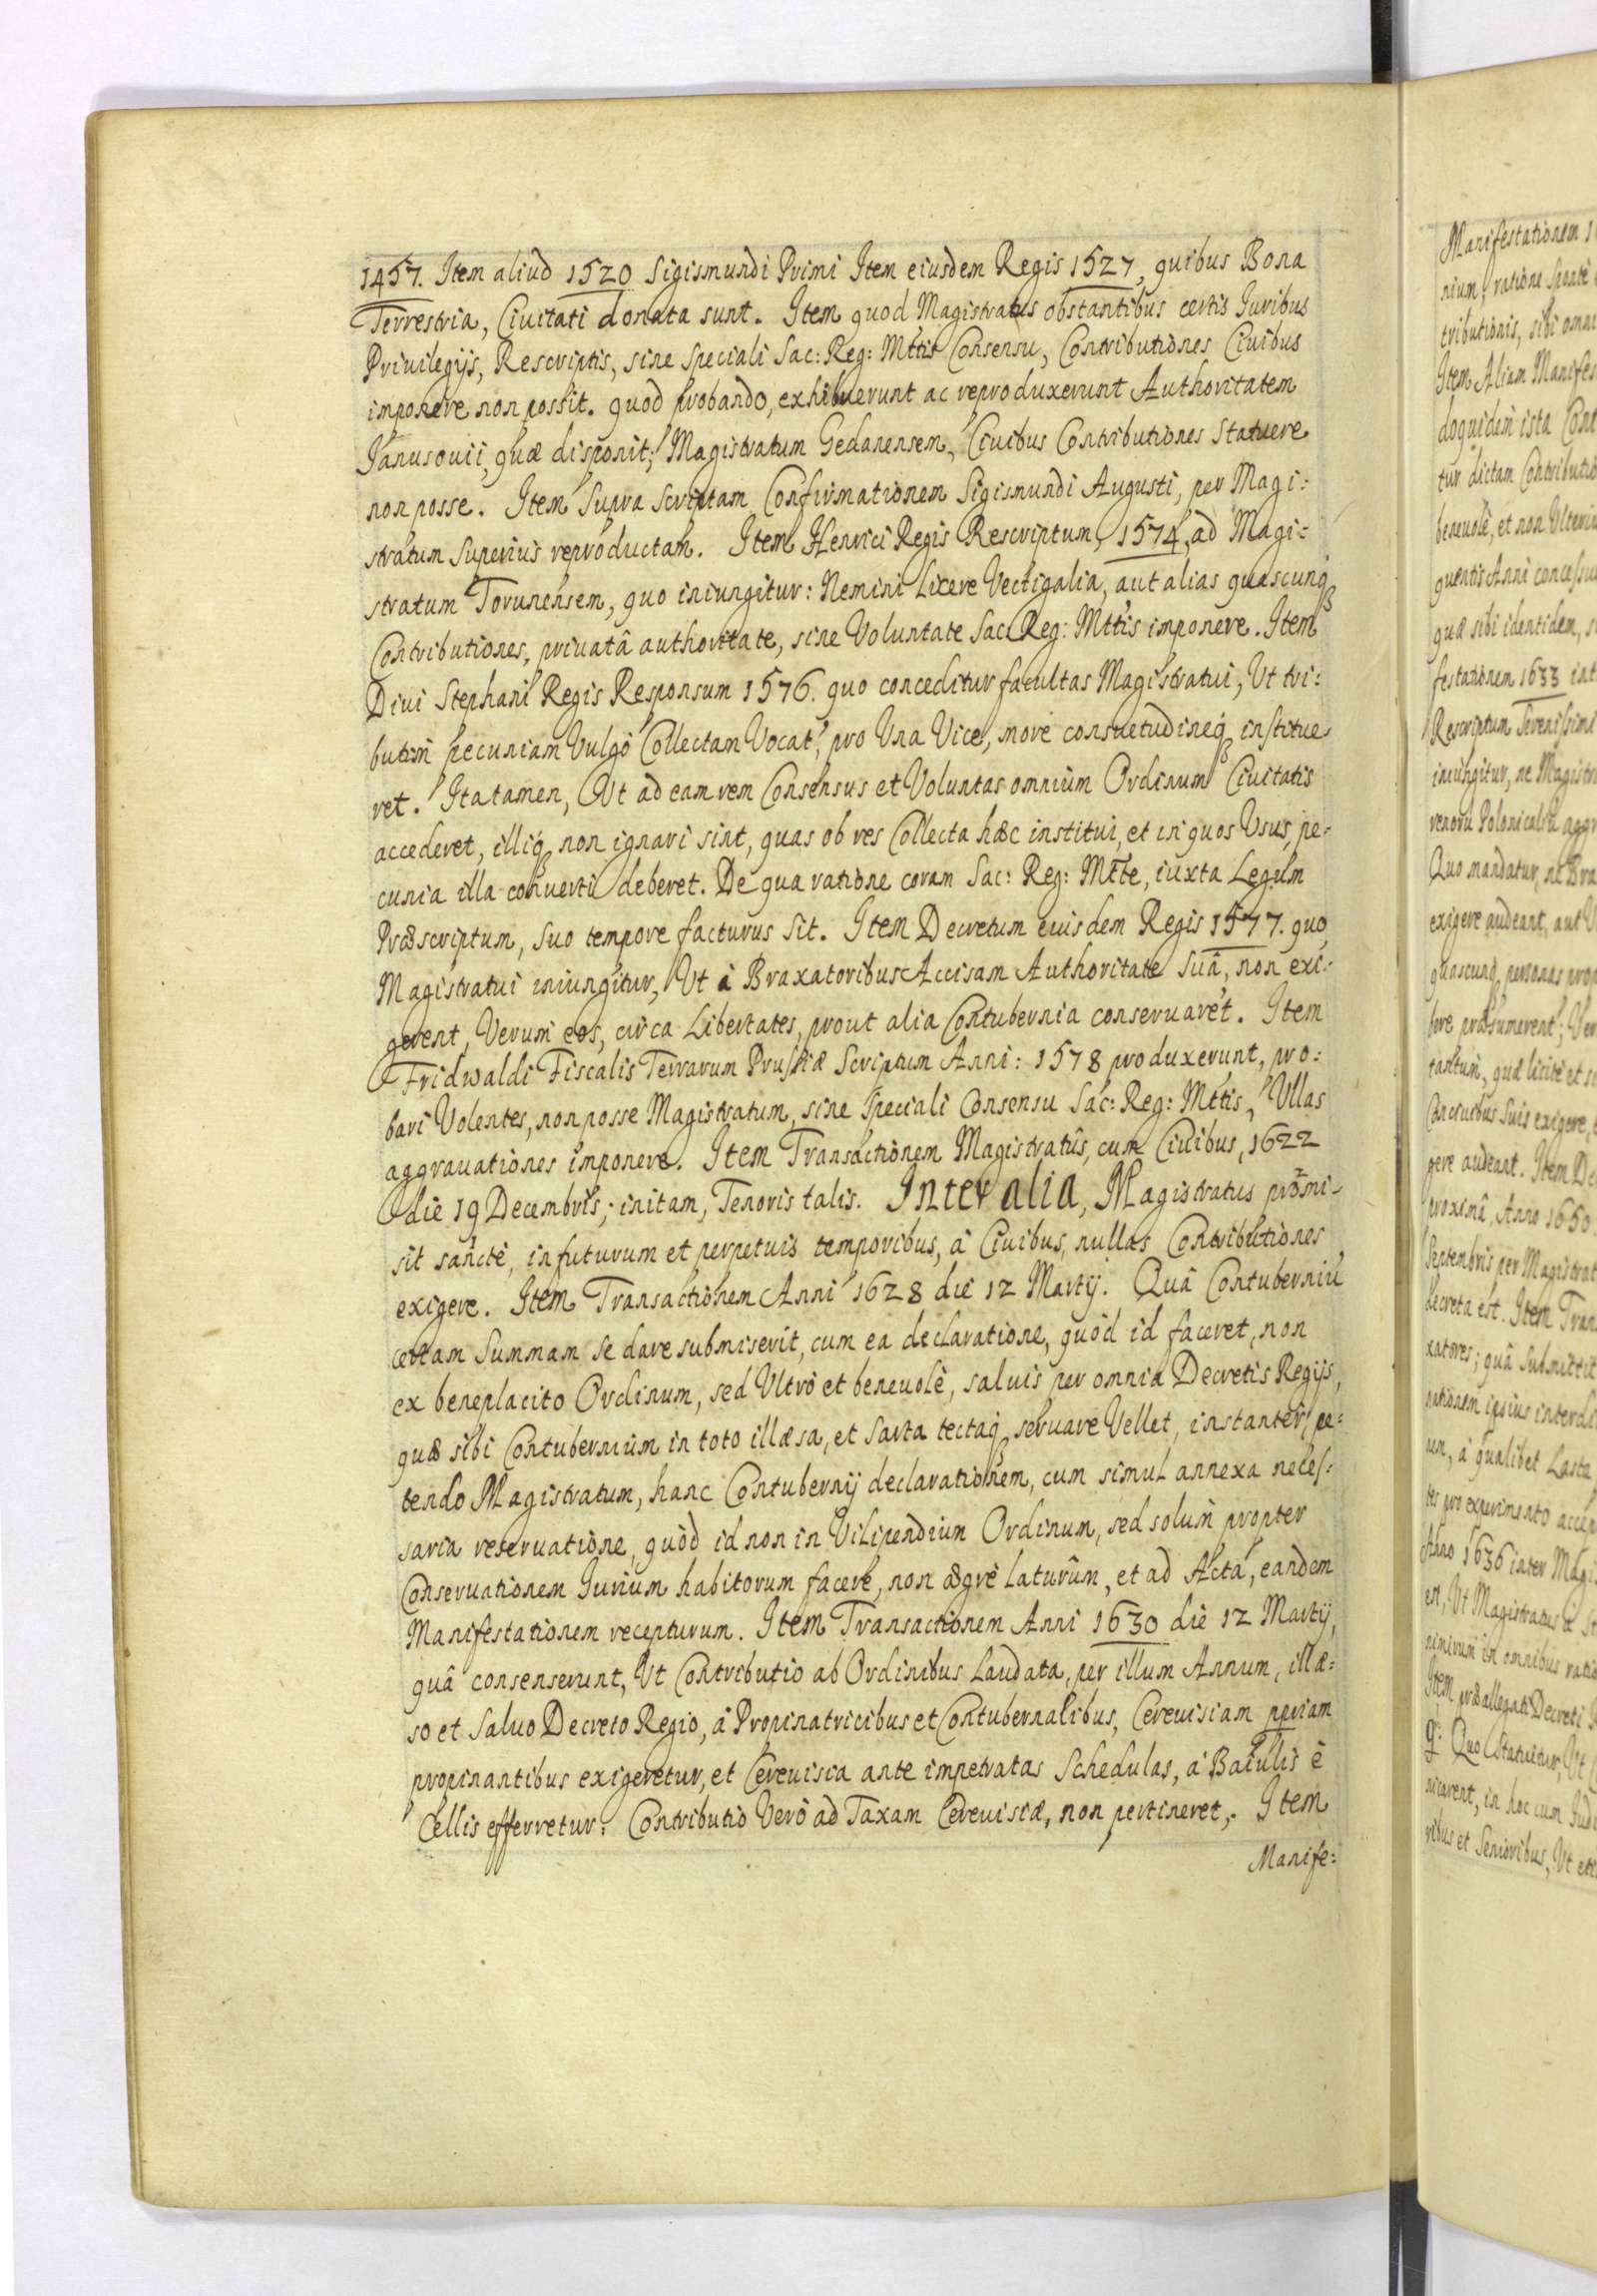 1457. Item aliud 1520 Sigismundi Primi Item eiusdem Regis 1527, quibus Bona
Terrestria, Ciuitati donata sunt. Item quod Magistratus obstantibus certis Iuribus
Priuilegijs, Rescriptis, sine speciali Sac: Reg: Mttis Consensu, Contributiones Ciuibus
imponere non possit. quod probando, exhibuerunt ac reproduxerunt Authoritatem
Janusouii, quæ disponit; Magistratum Gedanensem, Ciuibus Contributiones Statuere
non posse. Item Supra Scriptam Confirmationem Sigismundi Augusti, per Magi:
stratum Superius reproductam. Item Henrici Regis Rescriptum, 1574, ad Magi:
stratum Torunensem, quo iniungitur: Nemini Licere Vectigalia, aut alias quascunq
Contributiones, priuatâ authoritate, sine Voluntate Sac: Reg: Mttis imponere. Item
Diui Stephani Regis Responsum 1576. quo conceditur facultas Magistratui, Ut tri:
butim pecuniam Vulgò Collectam Vocat, pro Una Vice, more consuetudineq institue-
ret. Ita tamen, Ut ad eam rem Consensus et Voluntas omnium Ordinum Ciuitatis
accederet, illiq non ignari sint, quas ob res Collecta hæc institui, et in quos Usus, pe-
cunia illa conuerti deberet. De qua ratione coram Sac: Reg: Mtte, iuxta Legum
Præscriptum, Suo tempore facturus Sit. Item Decretum eiusdem Regis 1577. quo
Magistratui iniungitur, Ut à Braxatoribus Accisam Authoritate Suâ, non exi-
gerent, Verum eos, circa Libertates, prout alia Contubernia conseruaret. Item
Fridwaldi Fiscalis Terrarum Prussiæ Scriptum Anni: 1578 produxerunt, pro:
bari Volentes, non posse Magistratum, sine Speciali Consensu Sac: Reg: Mttis, Ullas
aggrauationes imponere. Item Transactionem Magistratûs, cum Ciuibus, 1622
die 19 Decembris, initam, Tenoris talis. Inter alia, Magistratus promi-
sit sanctè, in futurum et perpetuis temporibus, à Ciuibus, nullas Contributiones
exigere. Item Transactionem Anni 1628 die 12 Martij. Quâ Contuberniũ
certam Summam se dare submiserit, cum ea declaratione, quòd id faceret, non
ex beneplacito Ordinum, sed Ultrò et beneuolè, saluis per omnia Decretis Regijs,
quæ sibi Contubernium in toto illæsa, et Sarta tectaq seruare Vellet, instanter, pe:
tendo Magistratum, hanc Contubernij declarationem, cum simul annexa neces:
saria reseruatione, quòd id non in Vilipendium Ordinum, sed solum propter
Conseruationem Iurium habitorum facere, non ægrè Laturûm, et ad Acta, eandem
Manifestationem recepturum. Item Transactionem Anni 1630 die 12 Martij,
quâ consenserunt, Ut Contributio ab Ordinibus Laudata, per illum Annum, illæ:
so et Saluo Decreto Regio, à Propinatricibus et Contubernalibus, Cereuisiam ppriam
propinantibus exigeretur, et Cereuisia ante impetratas Schedulas, à Baiulis è
Cellis efferretur: Contributio Verò ad Taxam Cereuisiæ, non pertineret, Item
Manife:
Manifestationem
nium, ratione
tributionis, sibi
Item Aliam
doquidem ista
tur dictam
beneuolè, et non
quentis Anni
quæ sibi identidem,
festationem 1633
Rescriptum Serenissimi
iniungitur, ne
Quo mandatur, ne
exigere audeant, aut
quascunq personas
bere præsumerent;
tantum, quæ licitè et
Conciuibus Suis exigere,
gere audeant. Item
proximè, Anno 1650
Septembris per
decreta est. Item
xatores; quâ
ipsius
num, à qualibet Lasta
tes pro experimento
Anno 1636 inter
est, Ut Magistratus
nimirum in omnibus
Item præallegati Decreti
Quo Statuitur, Ut
in hoc cum
ribus et Senioribus, Ut